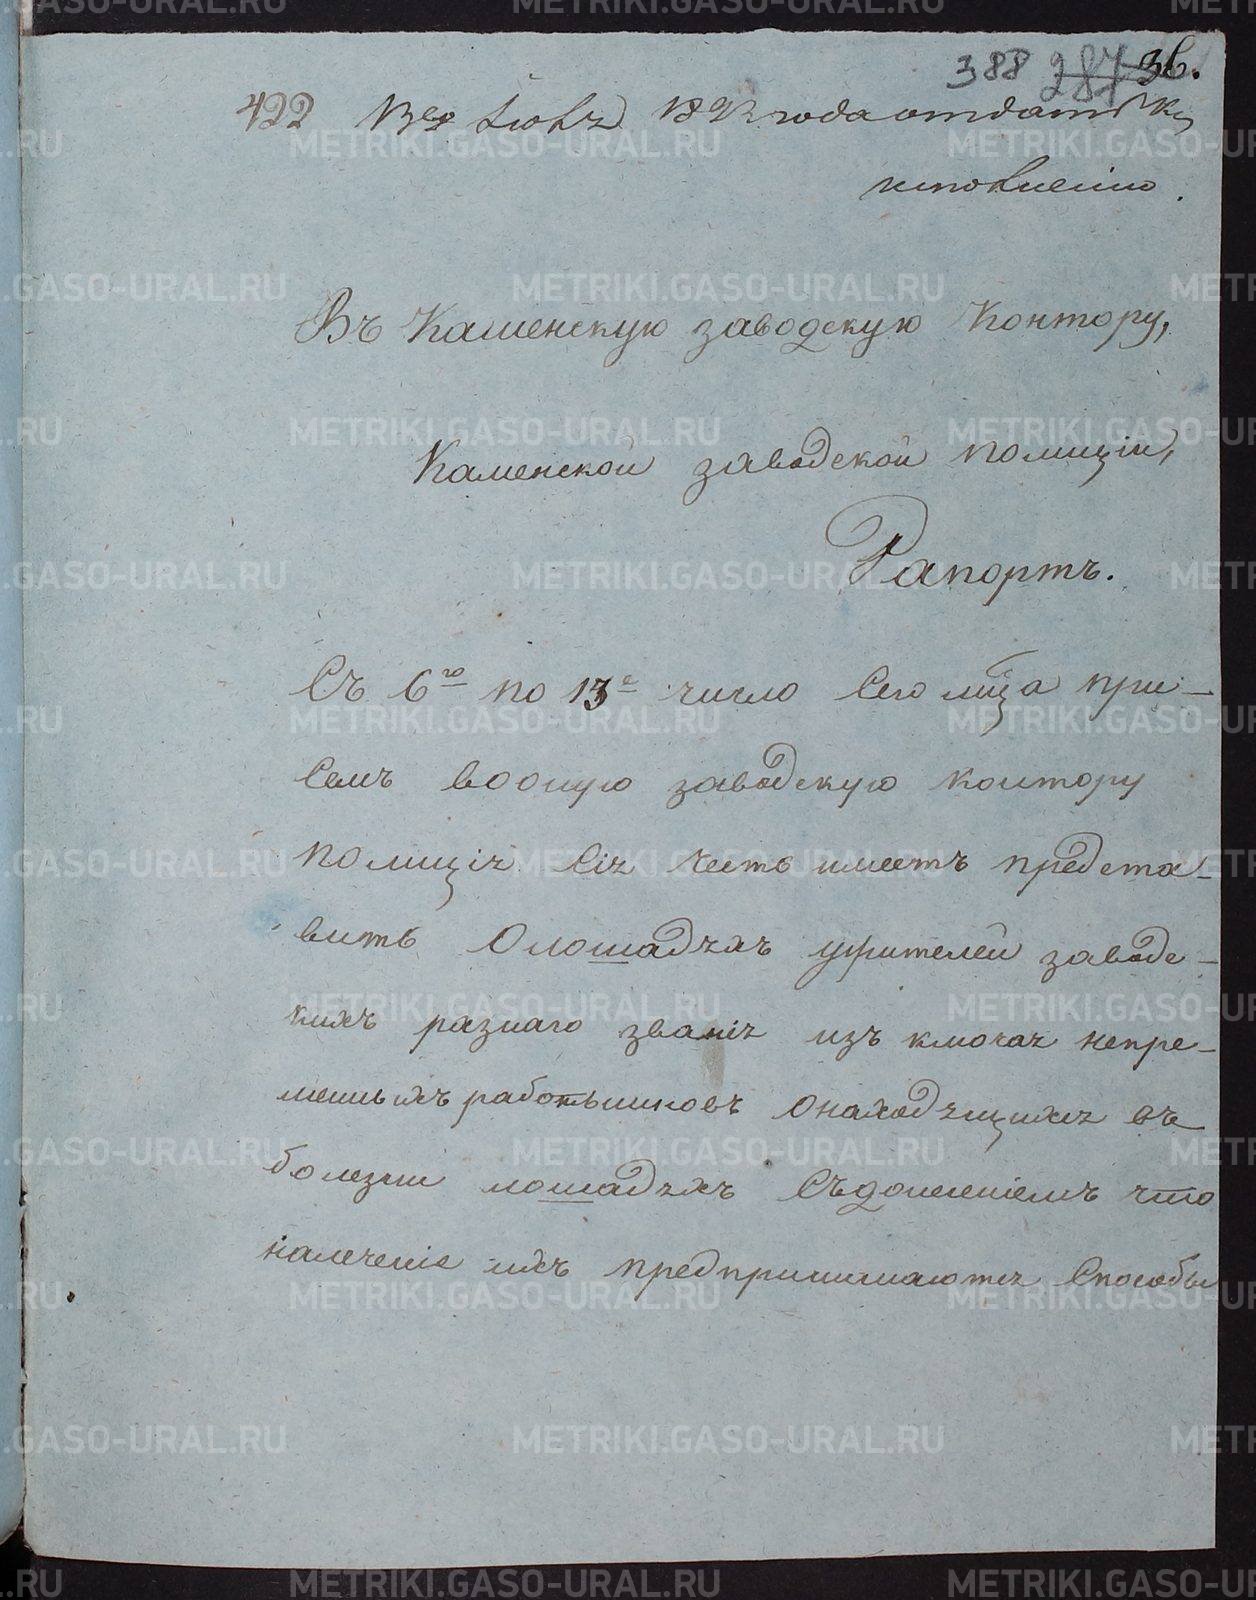 388 287 36.
422 13го Июля 1823 года отдать къ
исполнению.
Въ Каменскую заводскую Контору,
Каменской заводской полиции,
Рапортъ.
Съ 6го по 13е число Сего мца при-
Семъ вооную заводскую контору
полиция Сия честь имеетъ предста-
вить Олошадяхъ жителей заводс-
кихъ разнаго звания изъ ключая непре-
менныхъ работниковъ Онаходящихся въ
болезни лошадяхъ Съдонесениемъ что
налечение ихъ предпринимаются Способы
METRIKI.GASO-URAL.RU